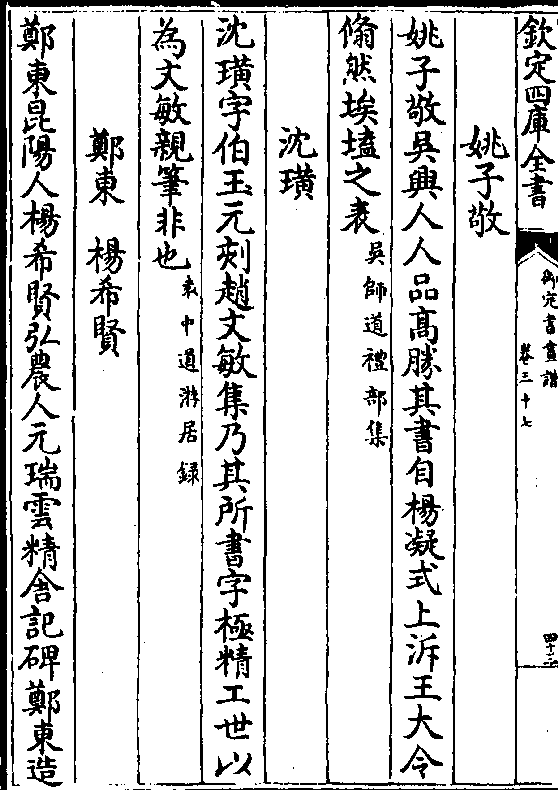 欽定四庫全書
御定書畫譜
卷三十七
四十三
姚子敬
姚子敬吳興人人品高勝其書自楊凝式上泝王大令
翛然埃壒之表吳師道禮部集
沈璜
沈璜字伯玉元刻趙文敏集乃其所書字極精工世以
為文敏親筆非也袁中道游居錄
鄭東　楊希賢
鄭東昆陽人楊希賢弘農人元瑞雲精舍記碑鄭東造